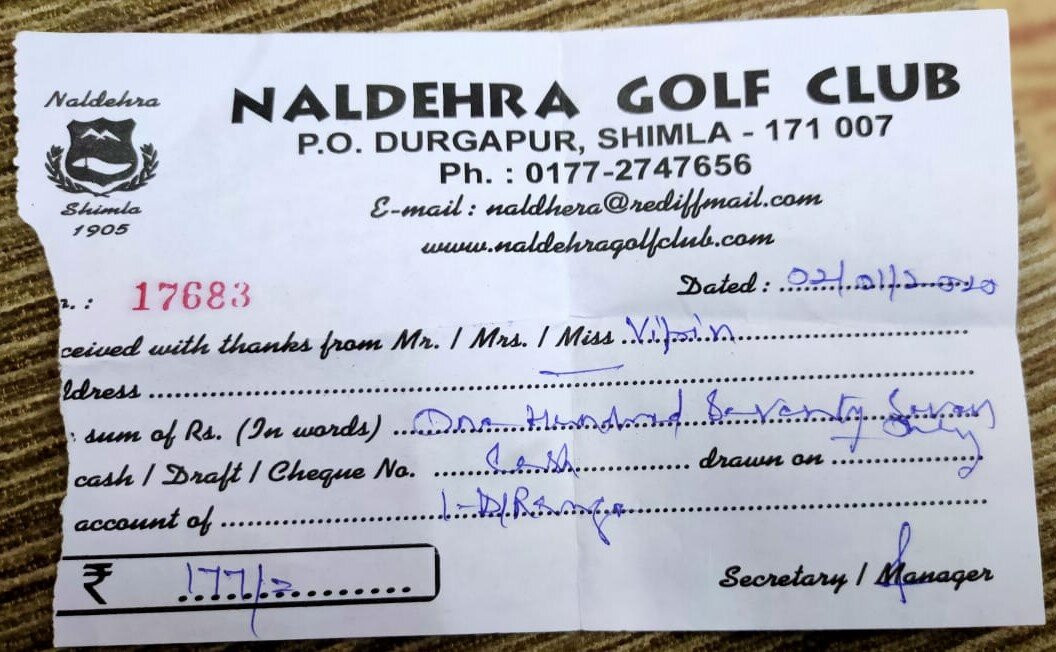 Naldehra
Shimla
1905
NALDEHRA GOLF CLUB
P.O. DURGAPUR, SHIMLA - 171 007
Ph. : 0177-2747656
E-mail : naldhera@rediffmail.com
www.naldehragolfclub.com
r. : 17683 Dated : 02/01/2020
ceived with thanks from Mr. / Mrs. / Miss Vipin
ddress
sum of Rs. (In words) One Hundred Seventy Seven Only
cash / Draft / Cheque No. Cash drawn on
account of 1-D/Range
₹ 177/=
Secretary / Manager